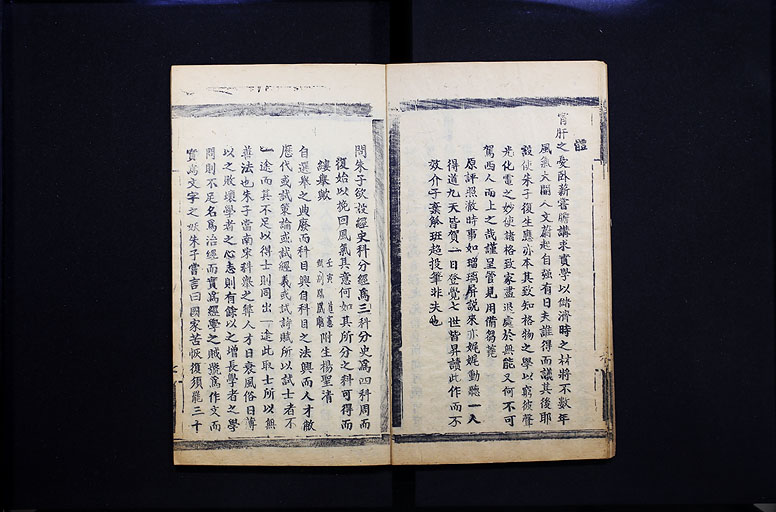 體
宵旰之憂臥薪嘗膽講求實學以備濟時之材將不數年
風氣大開人文蔚起自強有日夫誰得而議其後耶
設使朱子復生應亦本其致知格物之學以窮彼聲
光化電之妙使諸格致家盡退處於無能又何不可
駕西人而上之哉謹呈管見用備芻蕘
原評照澈時事如瑠璃屏說來亦娓娓動聽一人
得道九天皆賀一日登覺七世皆昇讀此作而不
效介子棄觚班超投筆非夫也
問朱子欲設經史科分經爲三科分史爲四科周而
復始以挽回風氣其意何如其所分之科可得而
縷舉歟
壬寅 道憲
附生楊聖清
自選舉之典廢而科目興自科目之法興而人才敝
歷代或試策論或試經義或試詩賦所以試士者不
一途而其不足以得士則同出一途此取士所以無
善法也朱子當南宋科舉之弊人才日衰風俗日薄
以之敗壞學者之心志則有餘以之增長學者之學
問則不足名爲治經而實爲經學之賊號爲作文而
實爲文字之妖朱子嘗言曰國家苦恢復須罷三十